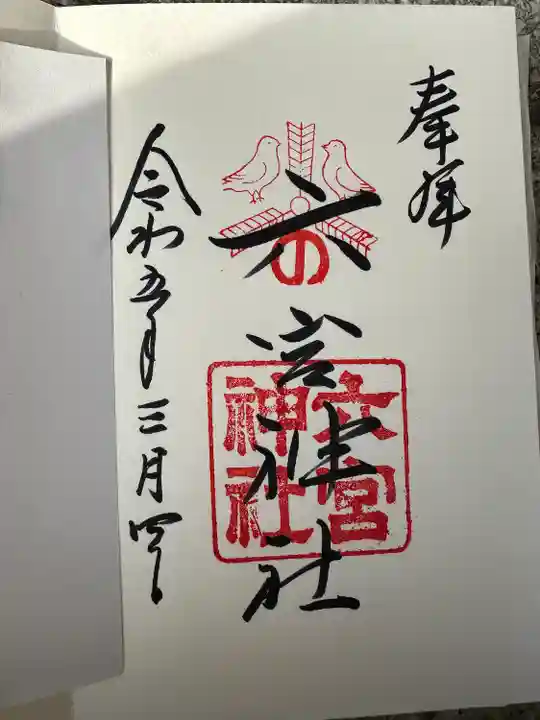 奉拝
六宮神社
の
六宮神社
令和五年三月四日